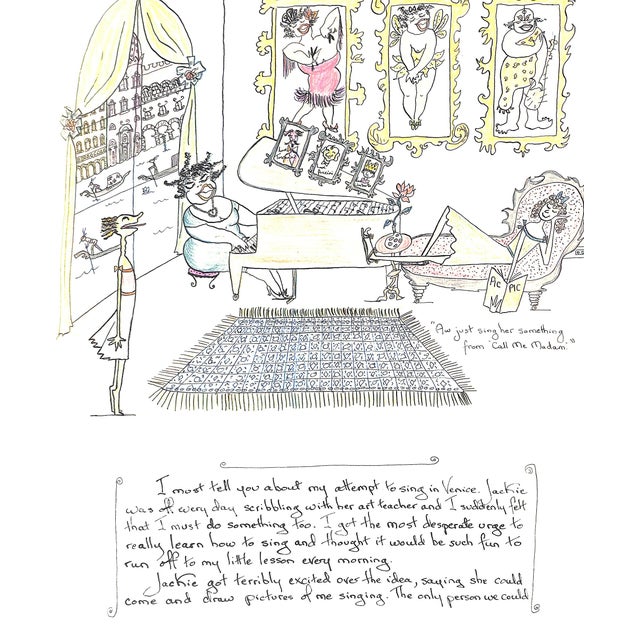 PIC PIC
"Aw just sing her something
from 'Call Me Madam.'"
I must tell you about my attempt to sing in Venice. Jackie
was off every day scribbling with her art teacher and I suddenly felt
that I must do something too. I got the most desperate urge to
really learn how to sing and thought it would be such fun to
run off to my little lesson every morning.
Jackie got terribly excited over the idea, saying she could
come and draw pictures of me singing. The only person we could